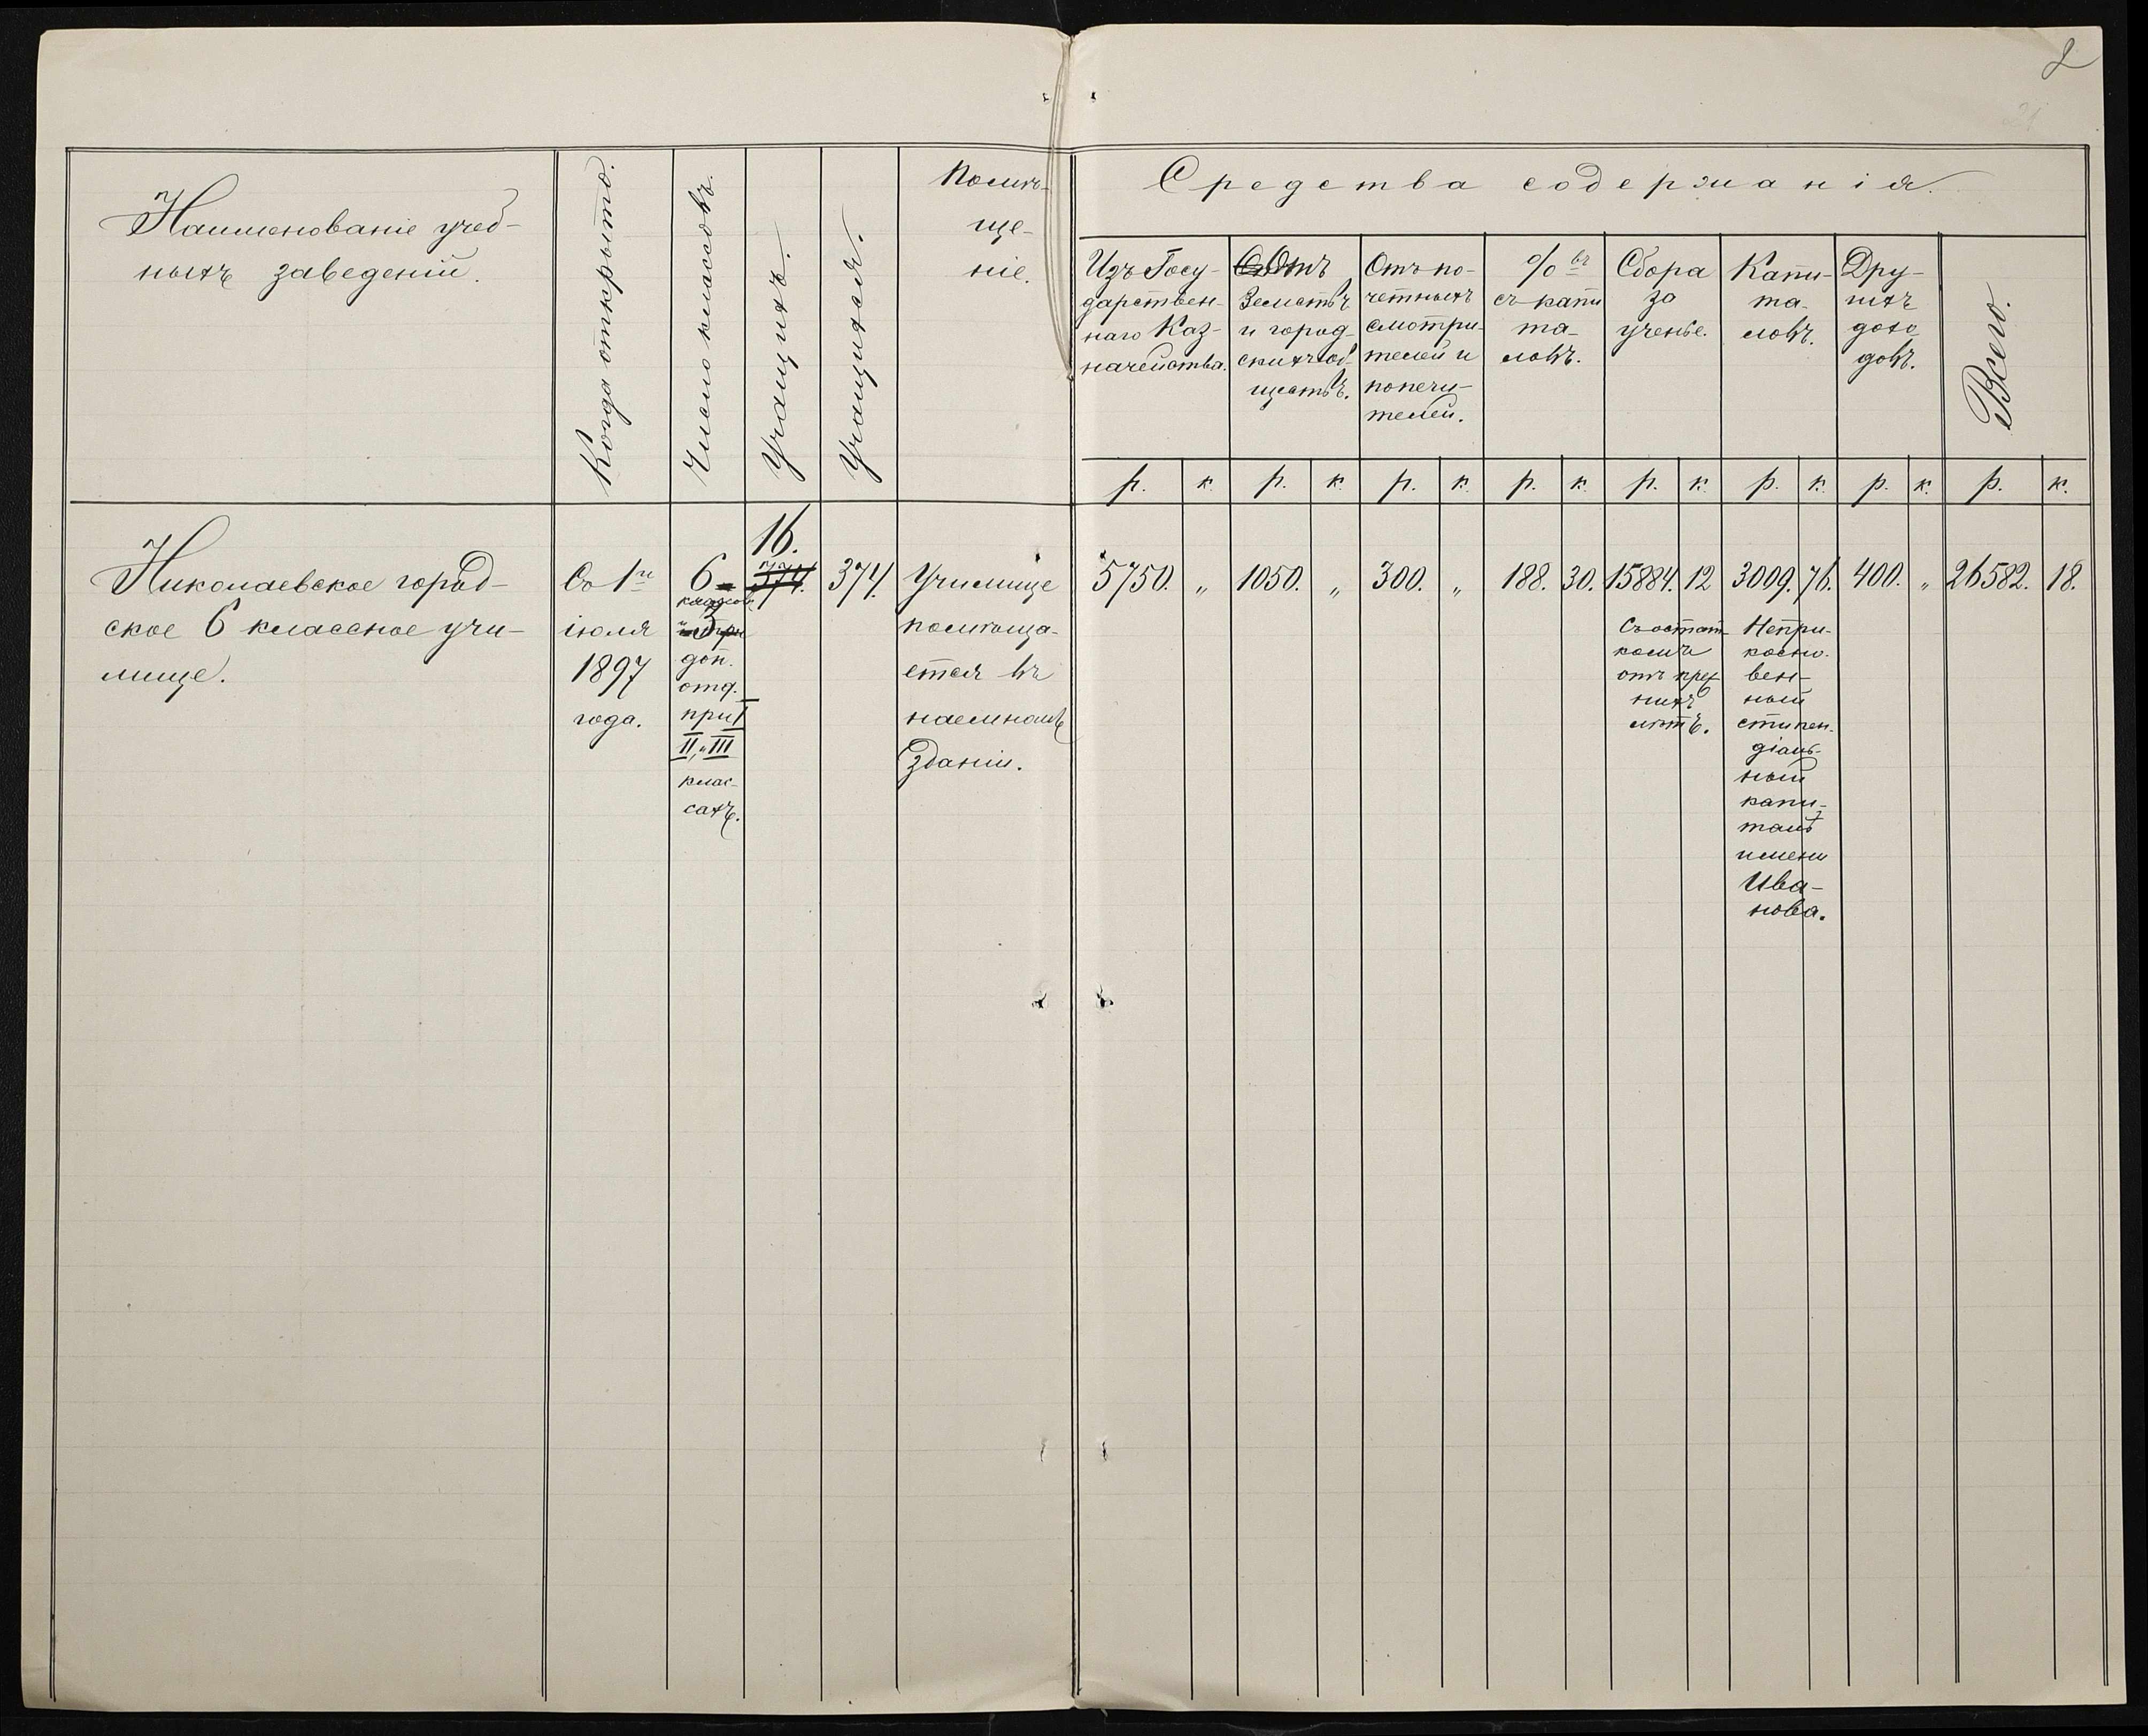 2
Наименованіе учеб-
ныхъ заведеній.
Когда открыто.
Число классовъ.
Учащихъ.
Учащихся.
Помѣ-
ще-
ніе.
Средства содержанія.
Изъ Госу-
дарствен-
наго Каз-
начейства.
Отъ
Земствъ
и город-
скихъ об-
ществъ.
Отъ по-
четныхъ
смотри-
телей и
попечи-
телей.
% въ
съ капи
та-
ловъ.
Сбора
за
ученье.
Капи-
та-
ловъ.
Дру-
гихъ
дохо
довъ.
Всего.
р. к. р. к. р. к. р. к. р. к. р. к. р. к. р. к.
Николаевское город-
ское 6 классное учи-
лище.
Съ 1го
іюля
1897
года.
6
классов
и 3
доп.
отд.
при I
II и III
клас-
сахъ.
16.
374.
374.
Училище
помѣща-
ется въ
наемномъ
зданіи.
5750. „ 1050. „ 300. „ 188. 30. 15884. 12 3009. 76. 400. „ 26582. 18.
Съ остат-
комъ
отъ преж
нихъ
лѣтъ.
Непри-
косно-
вен-
ный
стипен-
діаль-
ный
капи-
талъ
имени
Ива-
нова.